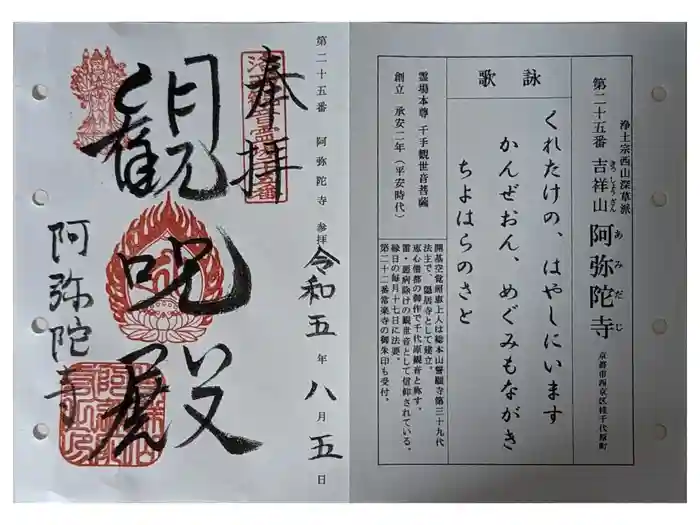 浄土宗西山深草派
第二十五番 吉祥山 阿弥陀寺
きっしょうざん
あみだじ
京都市西京区桂千代原町
詠歌
くれたけの、はやしにいます
かんぜおん、めぐみもながき
ちよはらのさと
霊場本尊 千手観世音菩薩
創立 承安二年(平安時代)
開基空覚耐恵上人は総本山誓願寺第三十九代
法主で、隠居寺として建立。
恵心僧都の御作で千代原観音と称す。
雷・悪病除けの観世音として信仰されている。
縁日の毎月十七日に法要。
第二十二番常楽寺の御朱印も受付。
第二十五番 阿弥陀寺 参拝 令和五年八月五日
奉拝
阿弥陀寺